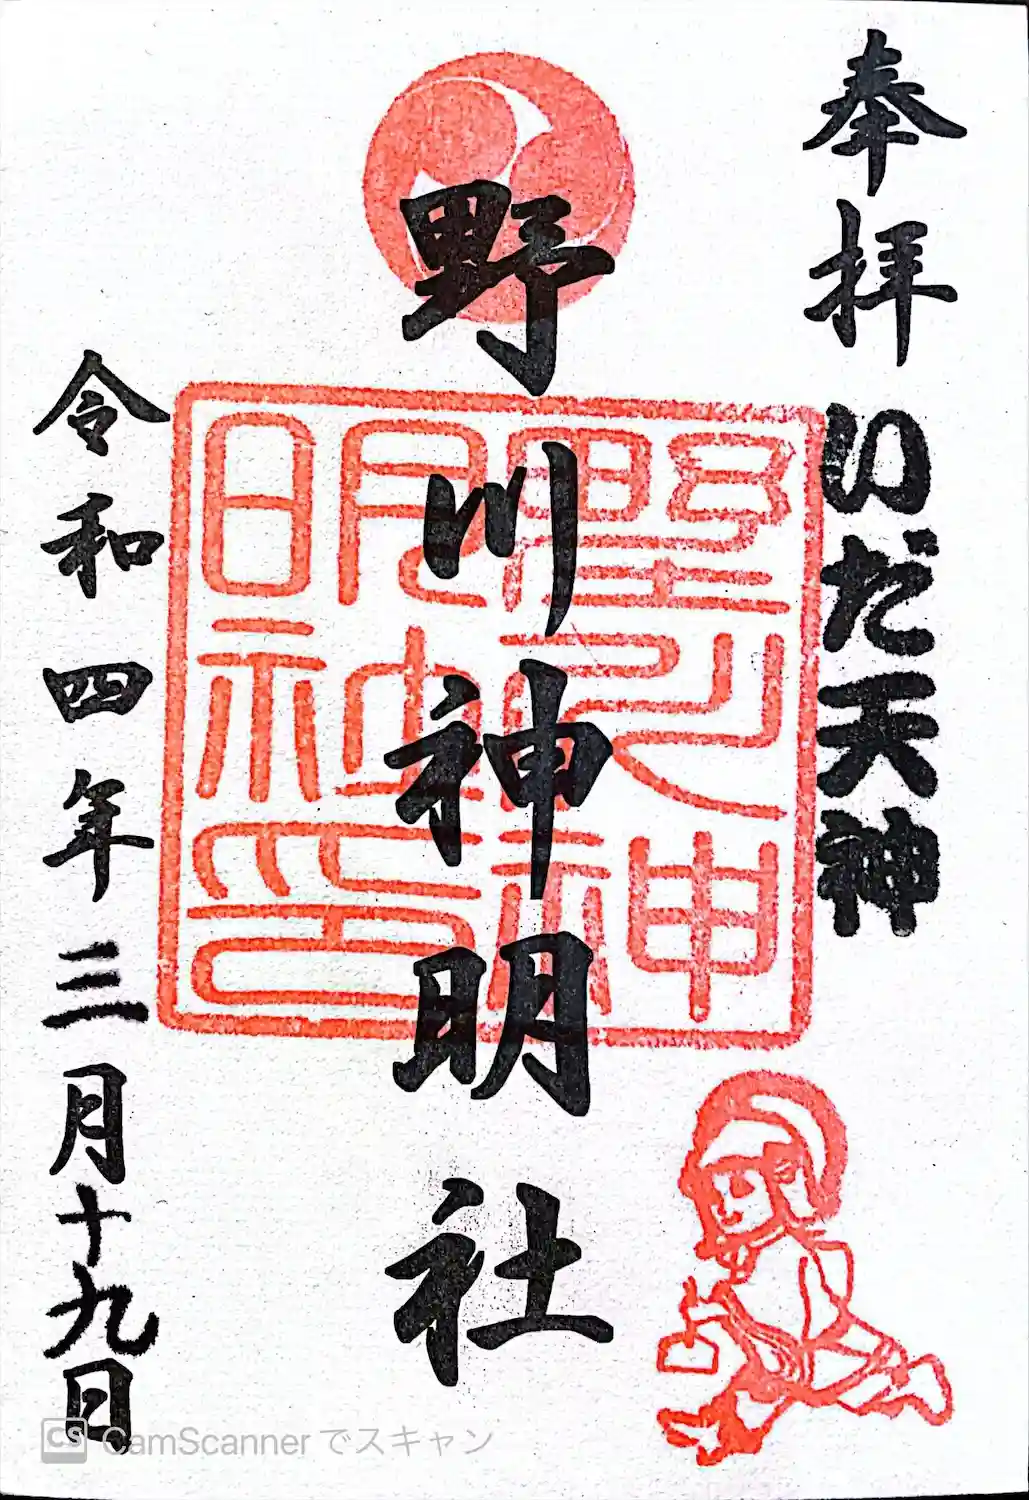 奉拝
いだ天神
野川神明社
令和四年三月十九日
CS CamScanner でスキャン